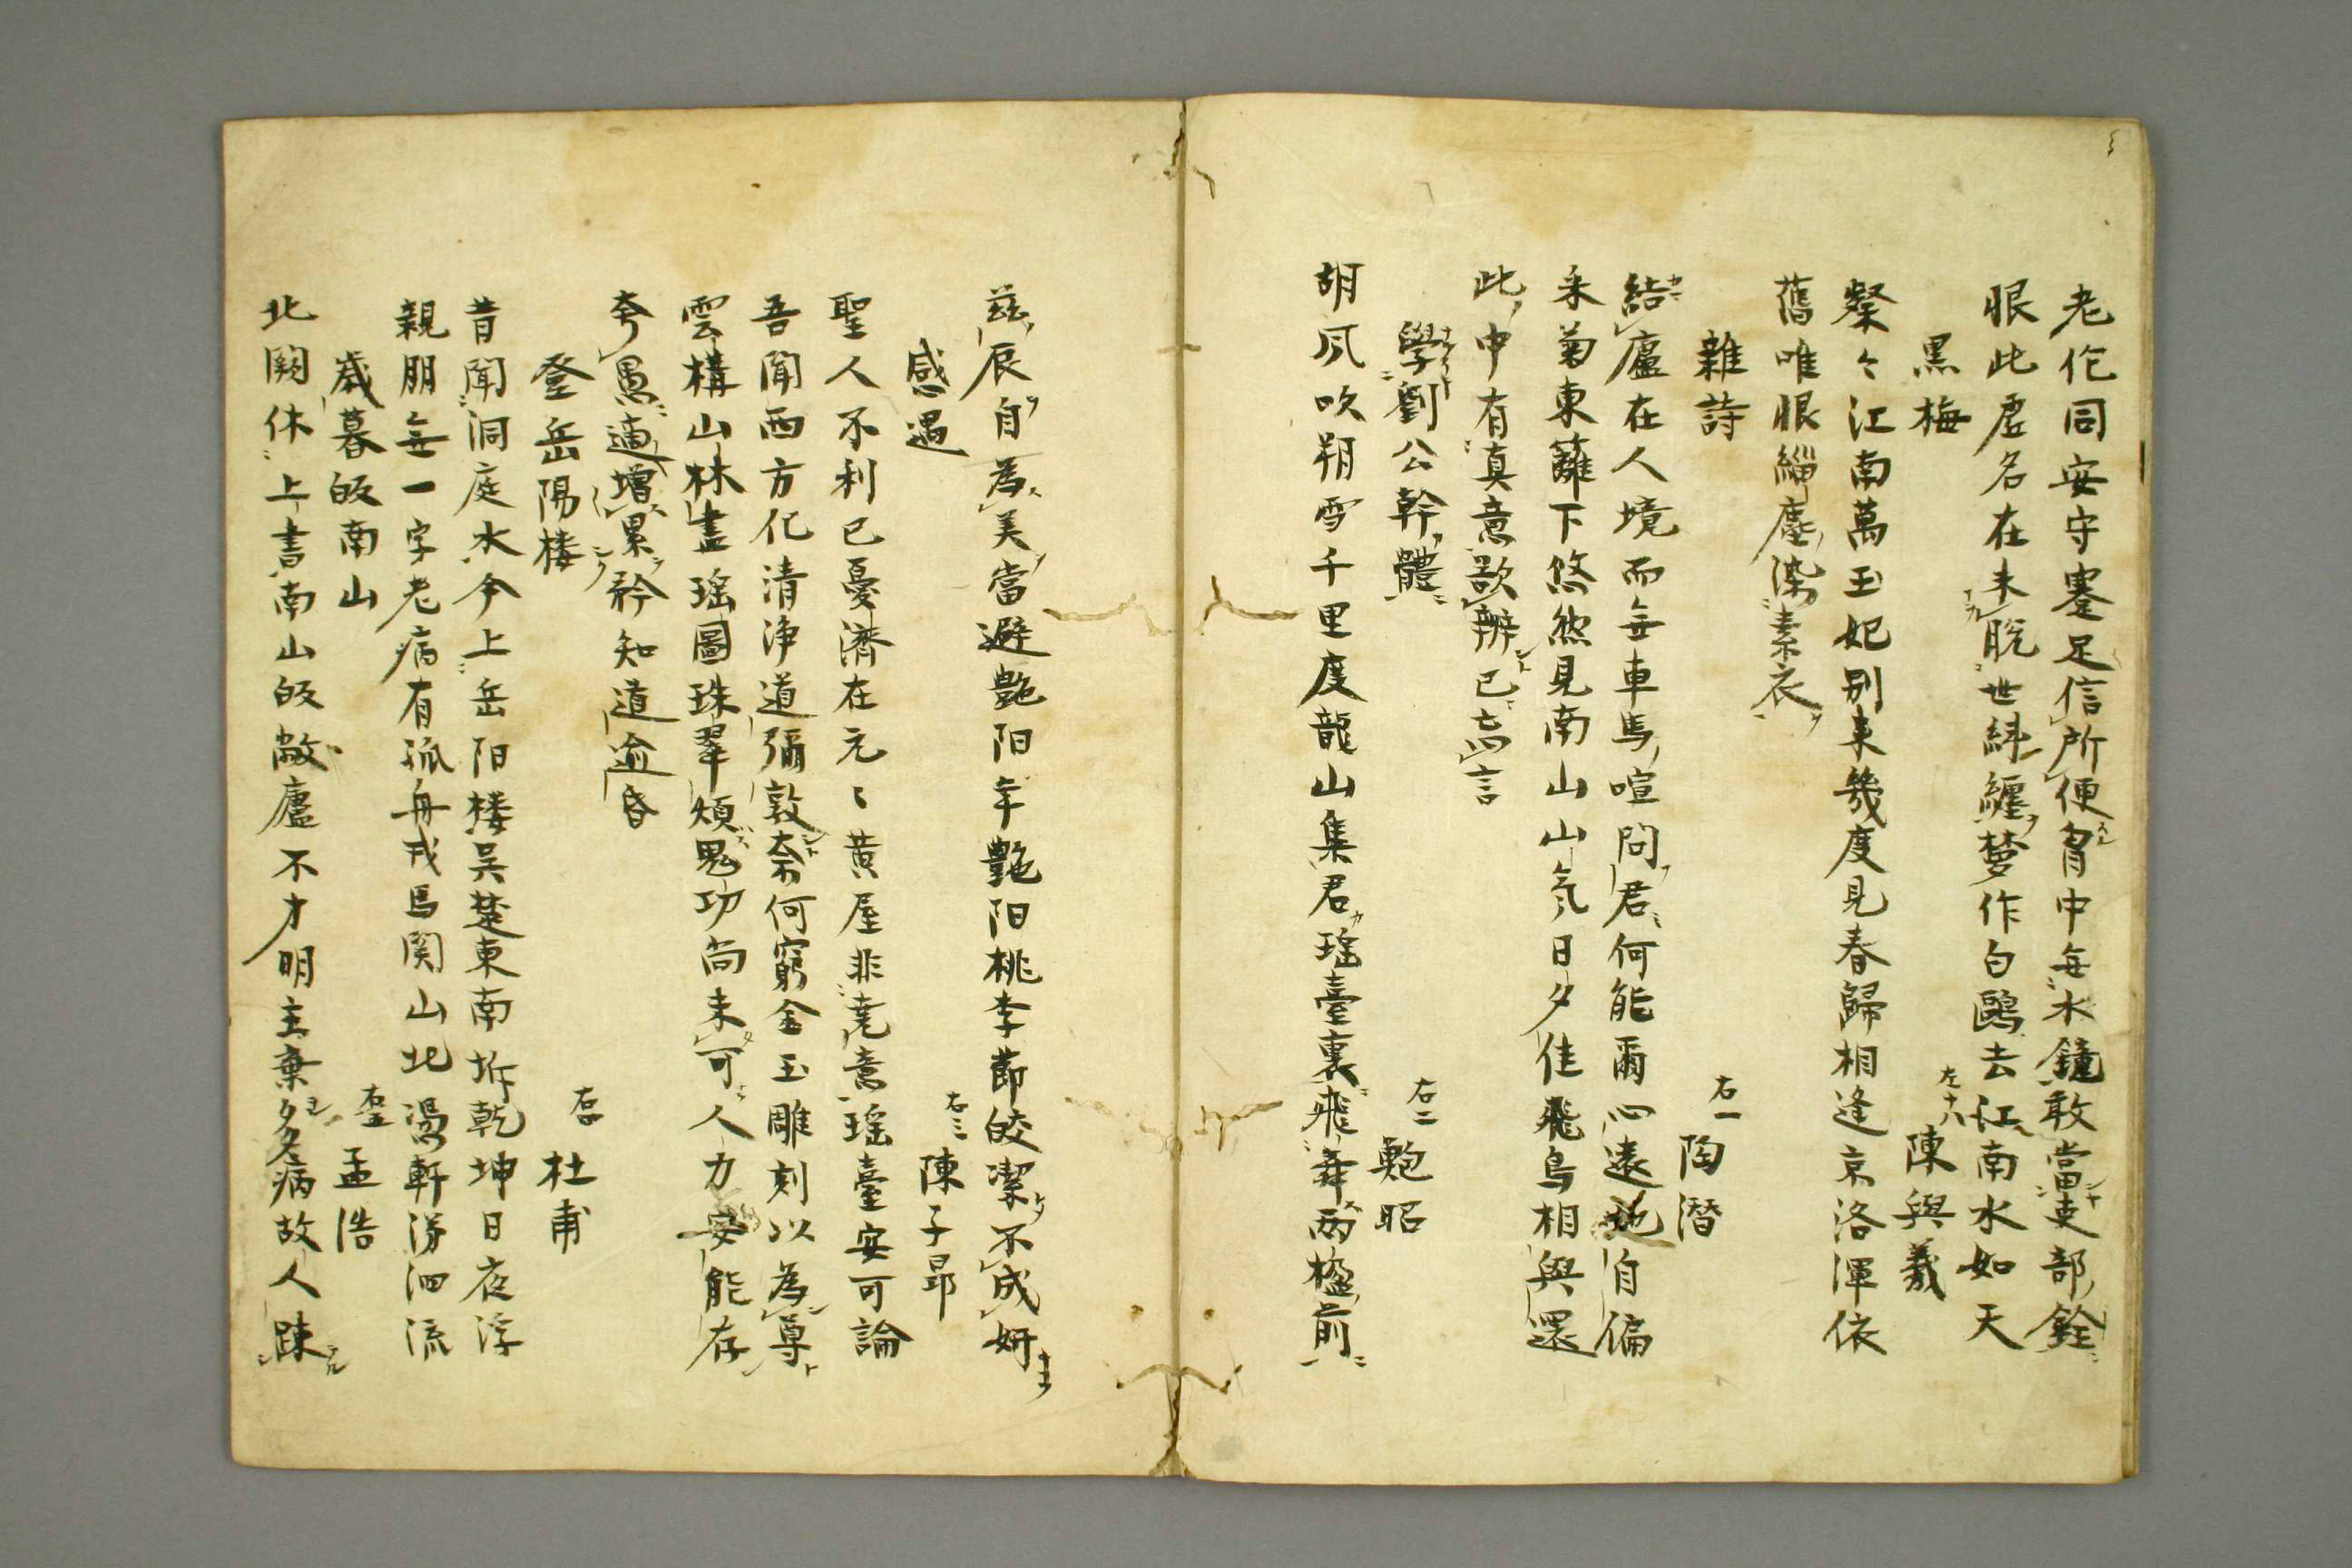 老佗同安守蹇足信所便胷中無水鏡敢當吏部銓
恨此虚名在未脫世紏纏夢作白鷗去江南水如天
黒梅 左十八 陳與義
粲〻江南萬玉妃別来幾度見春歸相逢京洛渾依
舊唯恨緇塵染素衣
雜詩 右一 陶潜
結廬在人境而無車馬喧問君何能爾心遠地自偏
采菊東籬下悠然見南山山氣日夕佳飛鳥相與還
此中有真意欲辨已忘言
學劉公幹體 右二 鮑昭
胡风吹朔雪千里度龍山集君瑶臺裏飛舞兩楹前
茲辰自為美當避艶阳年艶阳桃李節皎潔不成妍
感遇 右三 陳子昂
聖人不利已憂濟在元〻黄屋非堯意瑶臺安可論
吾聞西方化清浄道彌敦奈何窮金玉雕刻以為尊
雲構山林盡瑶圖珠翠煩鬼功尚未可人力安能存
夸愚適增累矜知道逾昏
登岳陽楼 右四 杜甫
昔聞洞庭水今上岳阳楼吴楚東南坼乾坤日夜浮
親朋無一字老病有孤舟戎馬関山北憑軒涕泗流
歳暮皈南山 右五 孟浩
北闕休上書南山皈敝廬不才明主棄多病故人踈